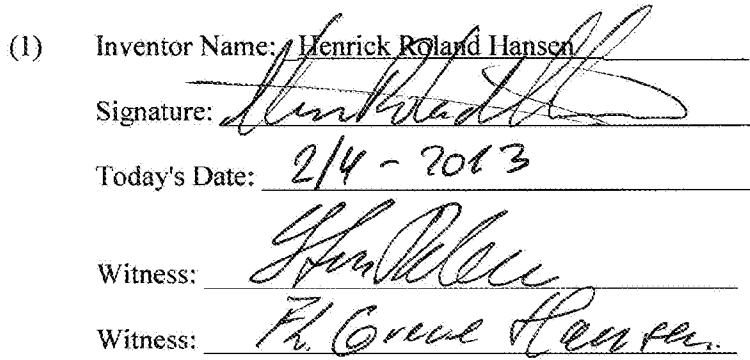 (1) Inventor Name: Henrick Roland Hansen
Signature:
Today's Date: 2/4 - 2013
Witness:
Witness: Hansen.